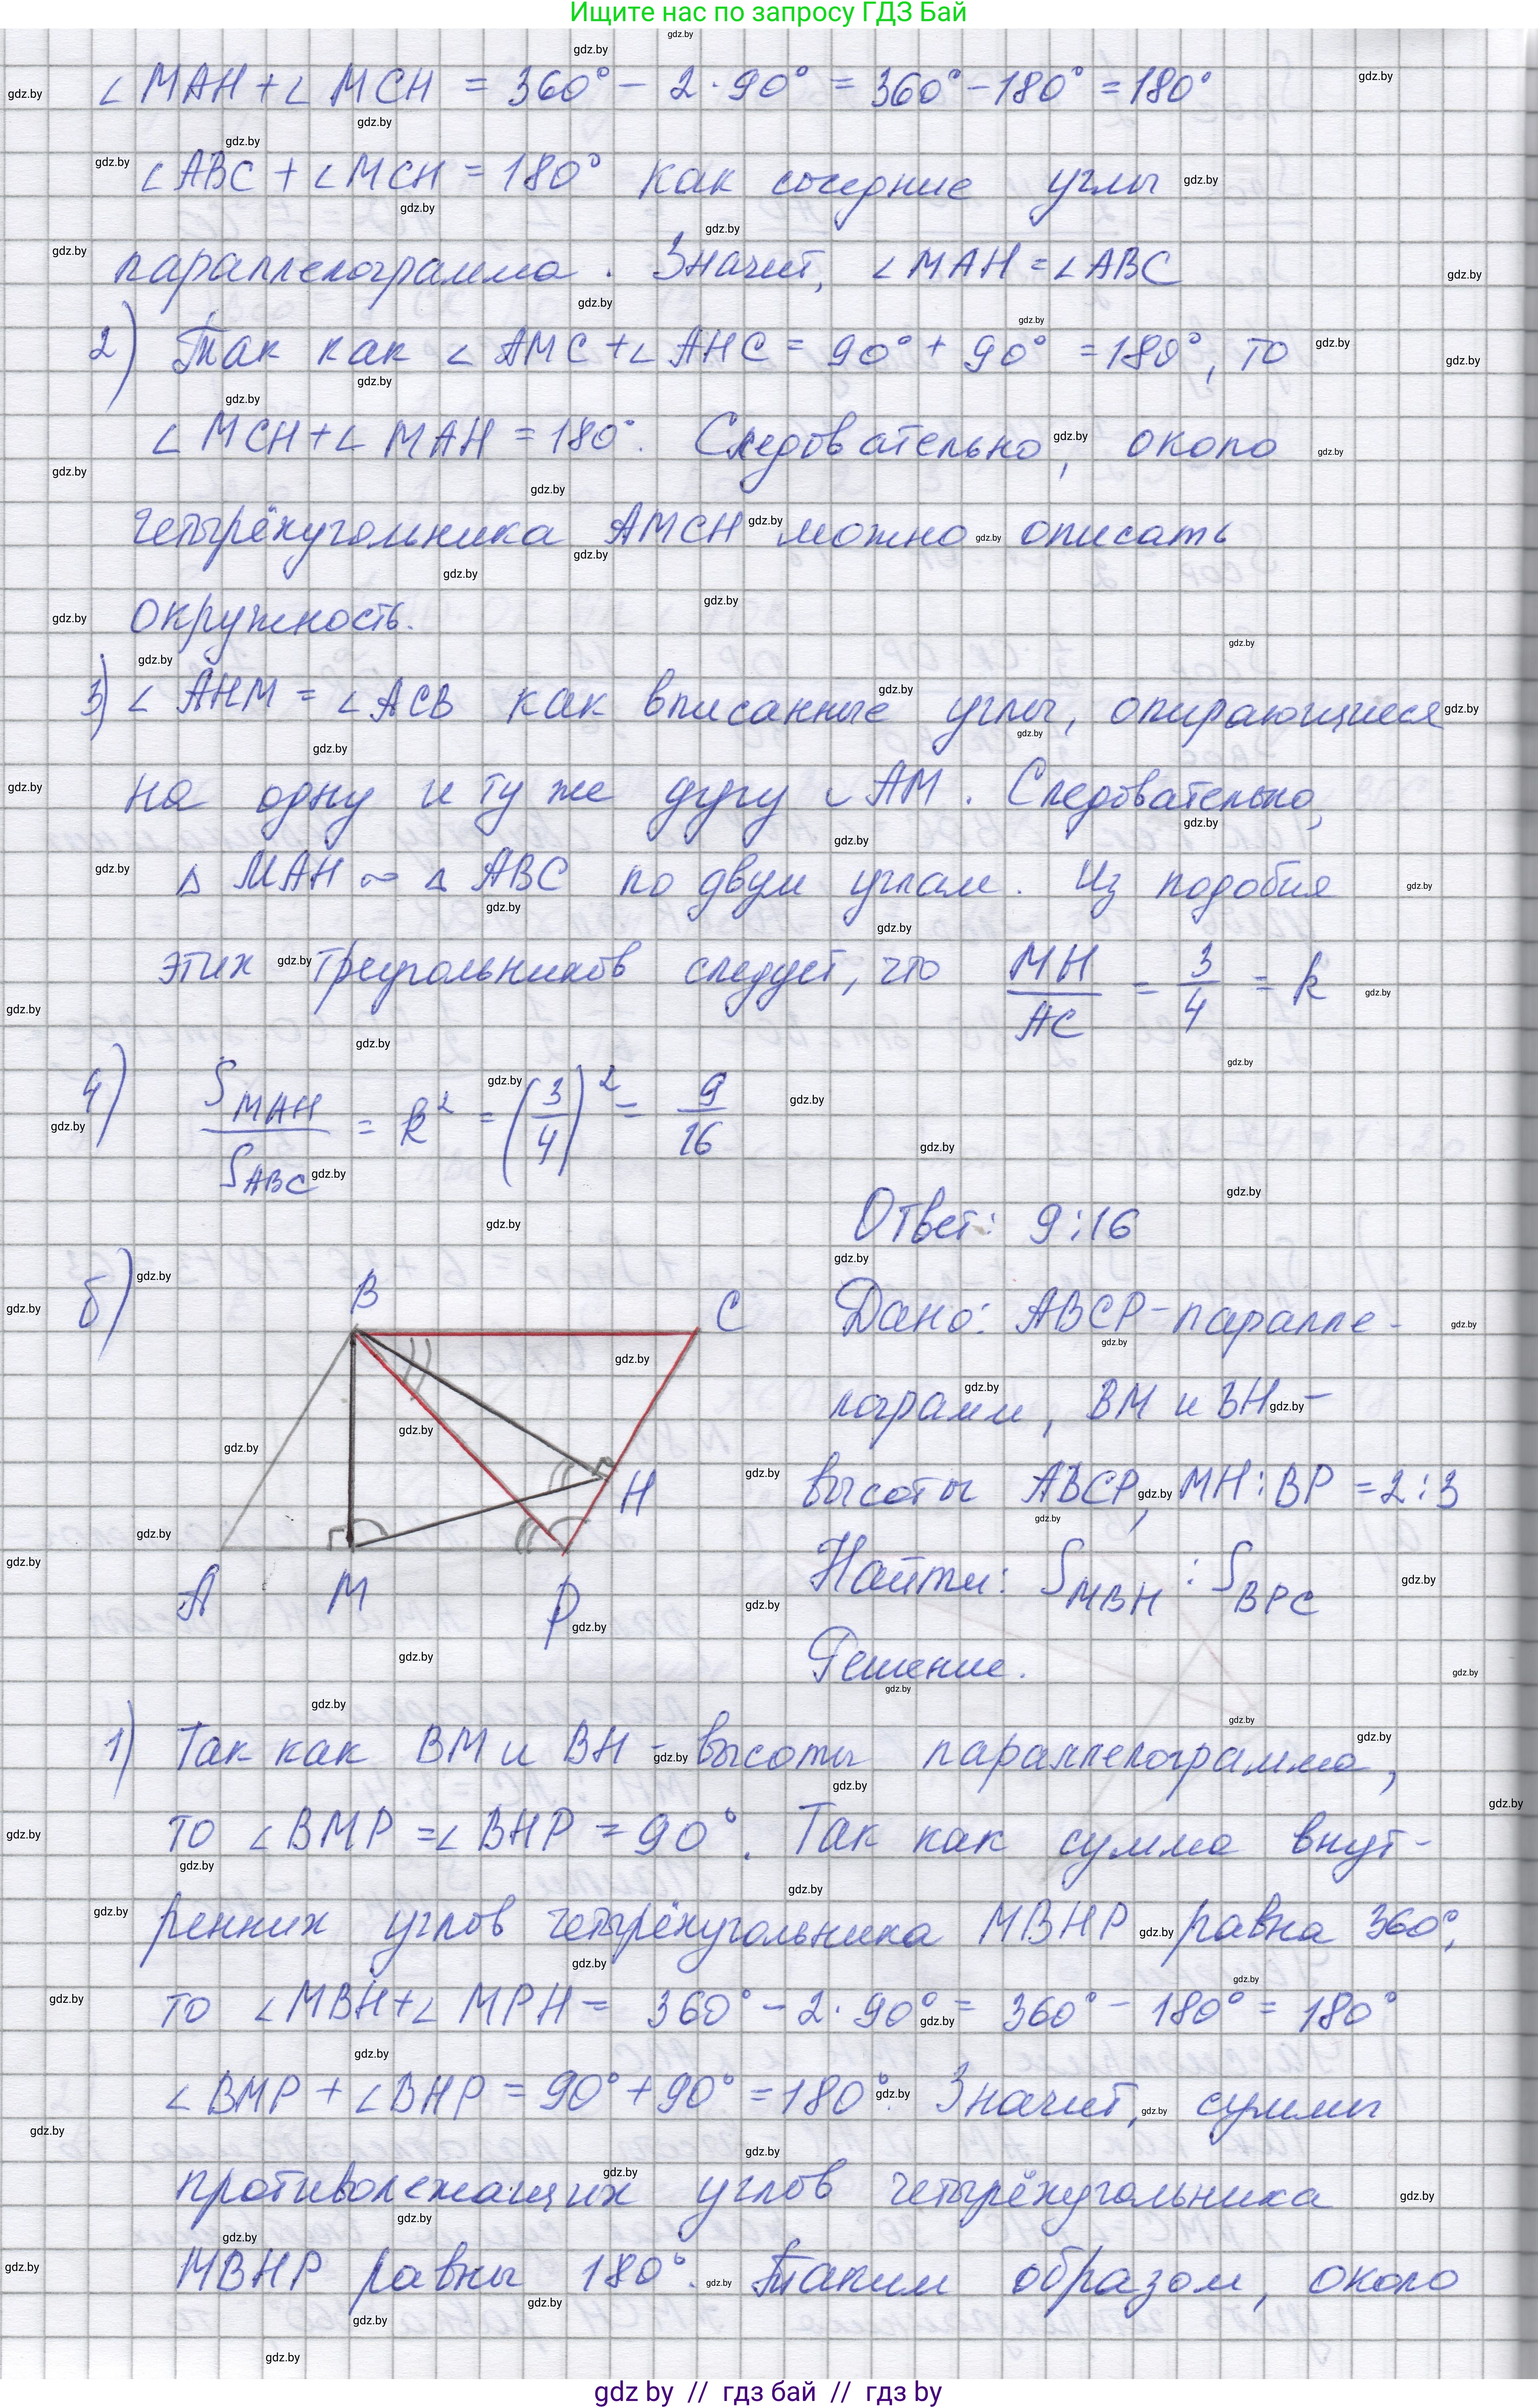 Ищите нас по запросу ГДЗ Бай
∠MAH + ∠MCH = 360° − 2·90° = 360° − 180° = 180°
∠ABC + ∠MCH = 180° как соседние углы
параллелограмма. Значит, ∠MAH = ∠ABC
2) Так как ∠AMC + ∠AHC = 90° + 90° = 180°, то
∠MCH + ∠MAH = 180°. Следовательно, около
четырёхугольника AMCH можно описать
окружность.
3) ∠AHM = ∠ACB как вписанные углы, опирающиеся
на одну и ту же дугу ◡AM. Следовательно,
△ MAH ∾ △ ABC по двум углам. Из подобия
этих треугольников следует, что MH/AC = 3/4 = k
4) S_MAH/S_ABC = k² = (3/4)² = 9/16
Ответ: 9:16
б)
B
C
H
A
M
P
Дано: ABCP - паралле-
лограмм, BM и BH -
высоты ABCP, MH:BP = 2:3
Найти: S_MBH : S_BPC
Решение.
1) Так как BM и BH - высоты параллелограмма,
то ∠BMP = ∠BHP = 90°. Так как сумма внут-
ренних углов четырёхугольника MBHP равна 360°,
то ∠MBH + ∠MPH = 360° − 2·90° = 360° − 180° = 180°
∠BMP + ∠BHP = 90° + 90° = 180°. Значит, суммы
противолежащих углов четырёхугольника
MBHP равны 180°. Таким образом, около
gdz by // гдз бай // гдз by